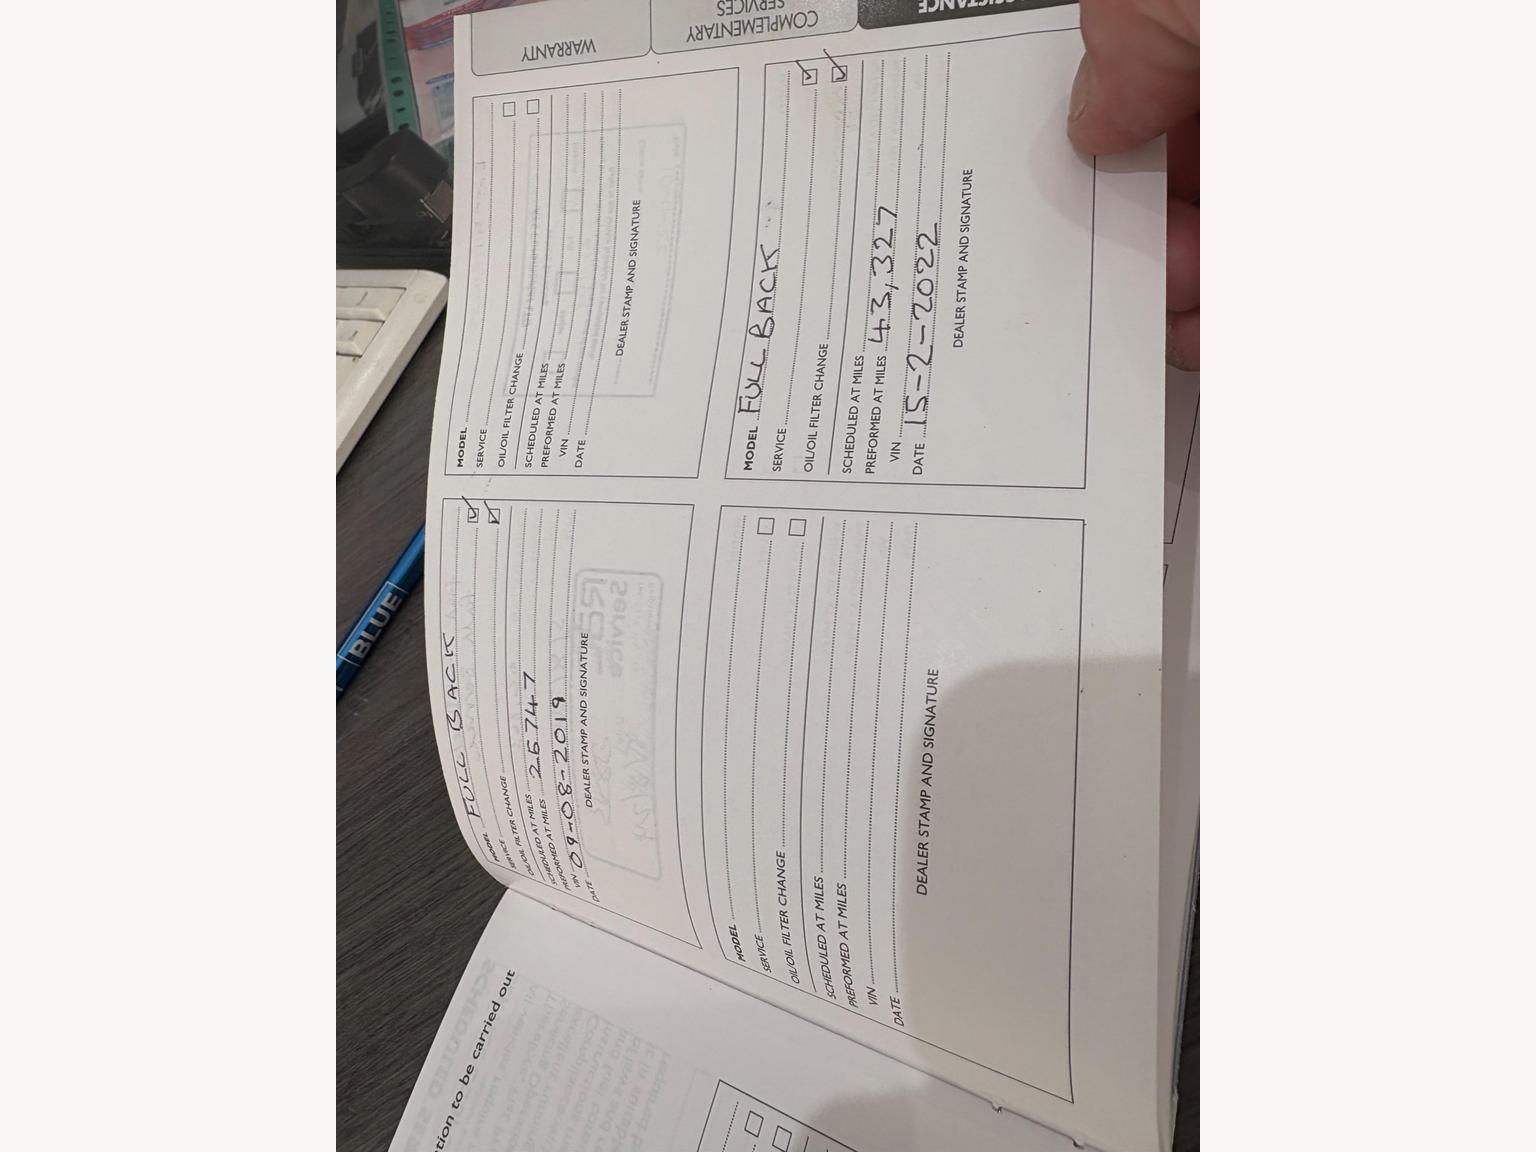 WARRANTY
COMPLEMENTARY
SERVICES
MODEL FULL BACK
SERVICE
OIL/OIL FILTER CHANGE
SCHEDULED AT MILES 26747
PREFORMED AT MILES
VIN 09-08-2019
DATE
DEALER STAMP AND SIGNATURE
MODEL
SERVICE
OIL/OIL FILTER CHANGE
SCHEDULED AT MILES
PREFORMED AT MILES
VIN
DATE
DEALER STAMP AND SIGNATURE
MODEL
SERVICE
OIL/OIL FILTER CHANGE
SCHEDULED AT MILES
PREFORMED AT MILES
VIN
DATE
DEALER STAMP AND SIGNATURE
MODEL FULL BACK
SERVICE
OIL/OIL FILTER CHANGE
SCHEDULED AT MILES
PREFORMED AT MILES 43,327
VIN
DATE 15-2-2022
DEALER STAMP AND SIGNATURE
to be carried out
BLUE